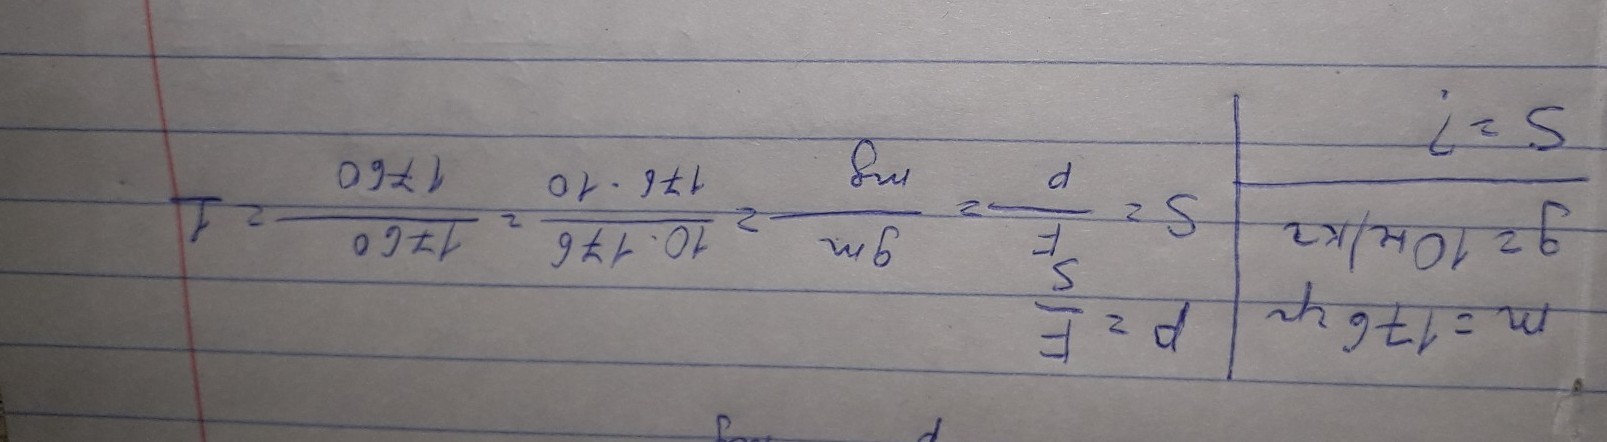 m = 176 гр
g = 10 н/кг
S = ?
p = F/S
S = F/p = gm/mg = 10·176/176·10 = 1760/1760 = 1